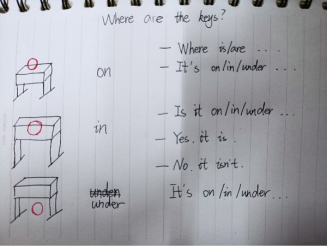 Where are the keys?
— Where is/are ...
on — It's on/in/under ...
— Is it on/in/under ...
in
— Yes, it is.
— No, it isn't.
under
under It's on/in/under...